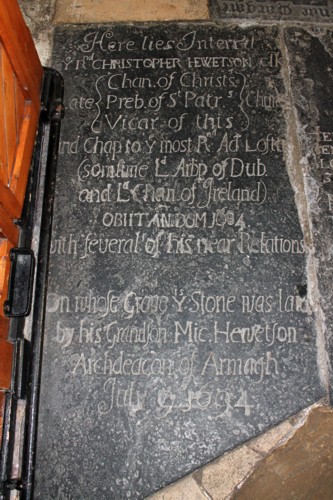 Here lies Interr'd
y Rd CHRISTOPHER HEWETSON
Chan. of Christs
Preb. of St Patrs
Vicar of this
and Chap to y most Rd Ad Loftus
(somtime Ld Arbp of Dub.
and Ld Chan. of Ireland)
OBIIT AN. DOM.
with several of his near Relations
On whose Grave ys Stone was laid
by his Grandson Mic. Hewetson
Archdeacon of Armagh
July 9 1694